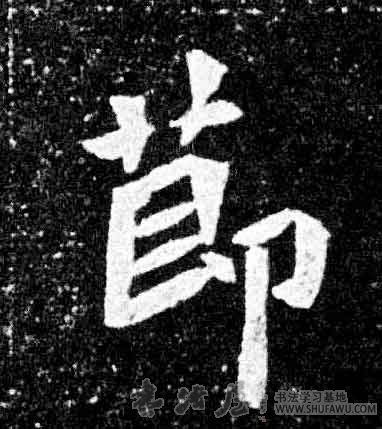 莭
書法屋
书法学习基地
WWW.SHUFAWU.COM